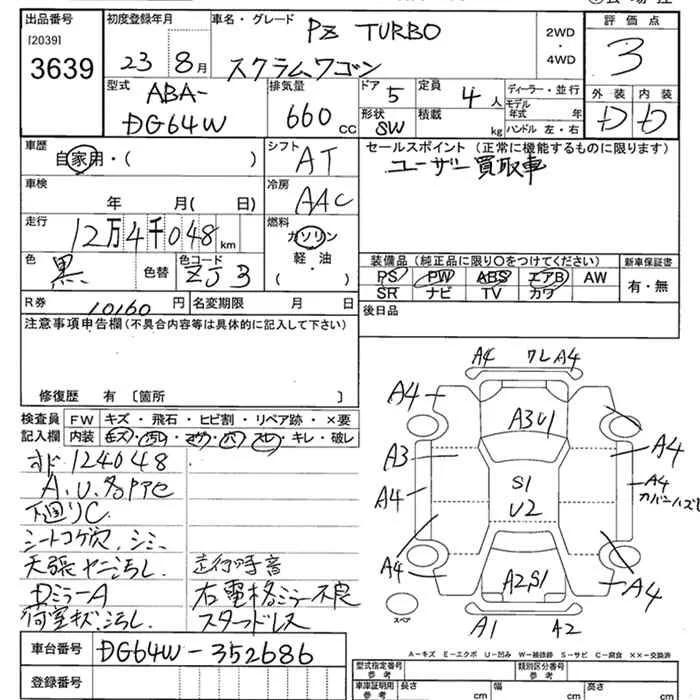 出品番号
[2039]
3639
初度登録年月
23 8月
車名・グレード
PZ TURBO
スクラムワゴン
2WD
・
4WD
評価点
3
外装 内装
D D
型式
ABA-
DG64W
排気量
660 cc
ドア 5
形状 SW
定員 4人
積載 kg
ディーラー・並行
モデル年式 年
ハンドル 左・右
車歴
自家用・( )
シフト AT
セールスポイント(正常に機能するものに限ります)
ユーザー買取車
車検
年 月( 日)
冷房 AAC
走行
12万4千048km
燃料
ガソリン
軽・油
( )
色
黒 色替
色コード
ZJ3
装備品(純正品に限り○をつけてください)
新車保証書
PS PW ABS エアB AW
SR ナビ TV カワ
有・無
R券 10160円
名変期限 月 日
後日品
注意事項申告欄(不具合内容等は具体的に記入して下さい)
修復歴 有〔箇所 〕
検査員記入欄
FW キズ・飛石・ヒビ割・リペア跡・×要
内装 キズ・汚れ・コゲ・穴・スレ・キレ・破レ
オド124048
A.U.各所色
下廻りC
シートコゲ穴、シミ、
天張ヤニ汚し、
DミラーA
荷室キズ汚し
走行時音
右電格ミラー不良
スタッドレス
A4 ワレA4
A4
A3U1
A3
A4
A4
S1
U2
A4
カバーハズレ
A4
A2S1
A4
A1 A2
スペア
A-キズ E-エクボ U-凹み W-補修跡 S-サビ C-腐食 ××-交換済
車台番号 DG64W-352686
登録番号
型式指定番号 参考
類別区分番号 参考
車庫証明用 参考
長さ cm
幅 cm
高さ cm